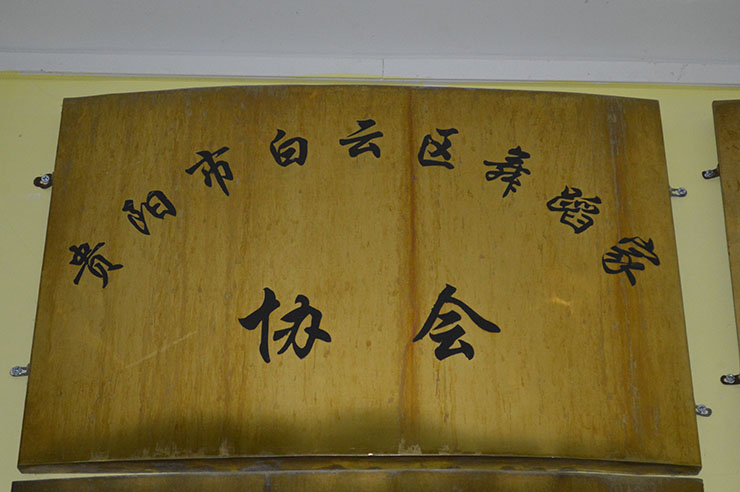 贵阳市白云区舞蹈家
协会